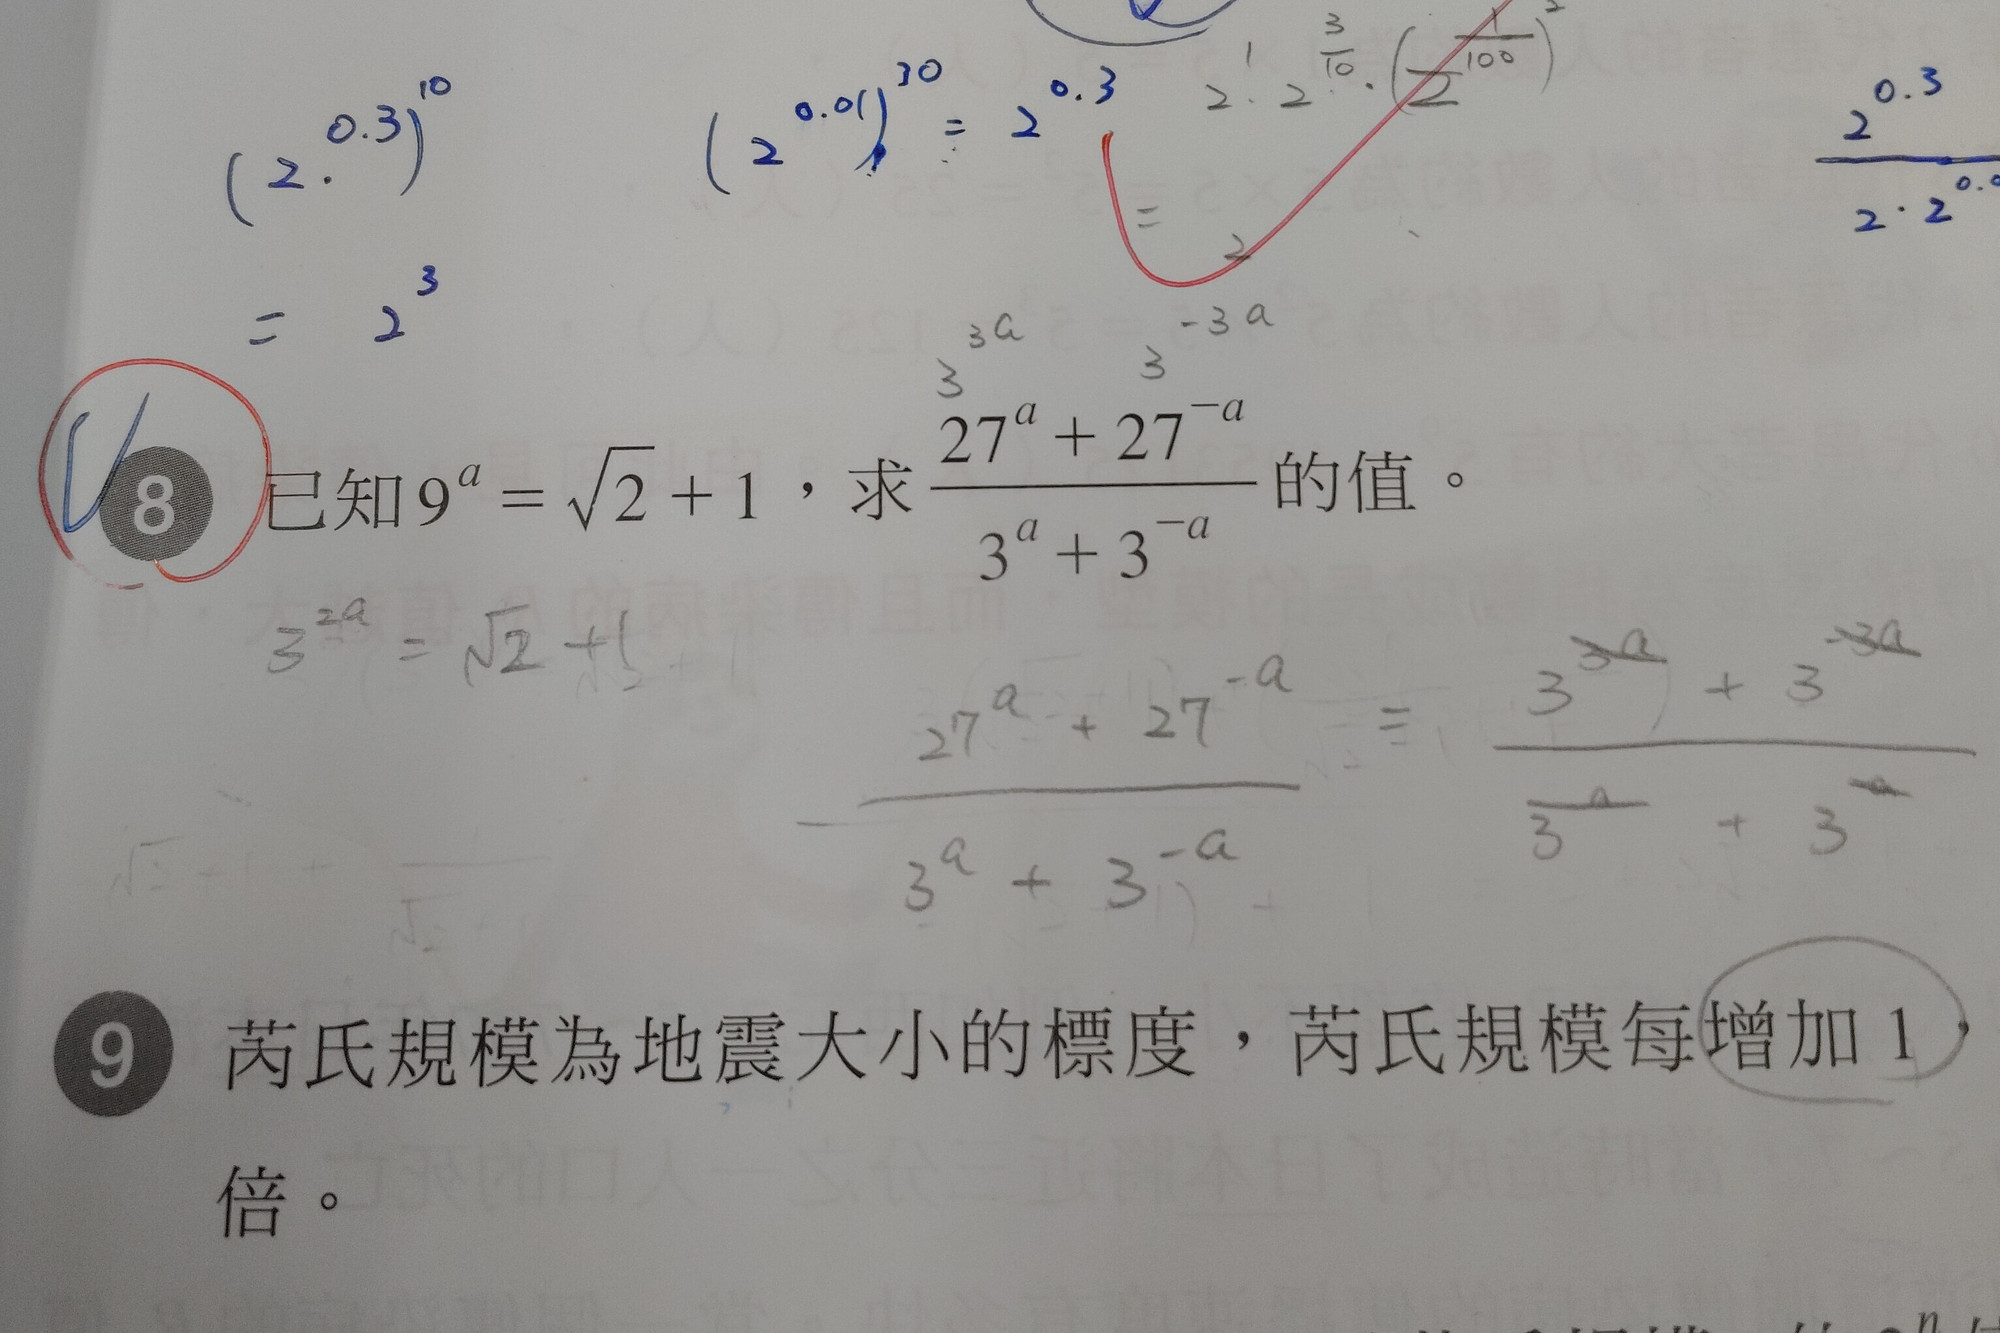 2¹ · 2^(3/10) · (2^(1/100))²
(2^0.3)^10 (2^0.01)^30 = 2^0.3
2^0.3 / 2 · 2^0.0
=
2
= 2³
3^3a 3^-3a
8 已知 9^a = √2 + 1，求 (27^a + 27^-a) / (3^a + 3^-a) 的值。
3^2a = √2 + 1
(27^a + 27^-a) / (3^a + 3^-a) = (3^3a + 3^-3a) / (3^a + 3^-a)
9 芮氏規模為地震大小的標度，芮氏規模每增加 1，
倍。